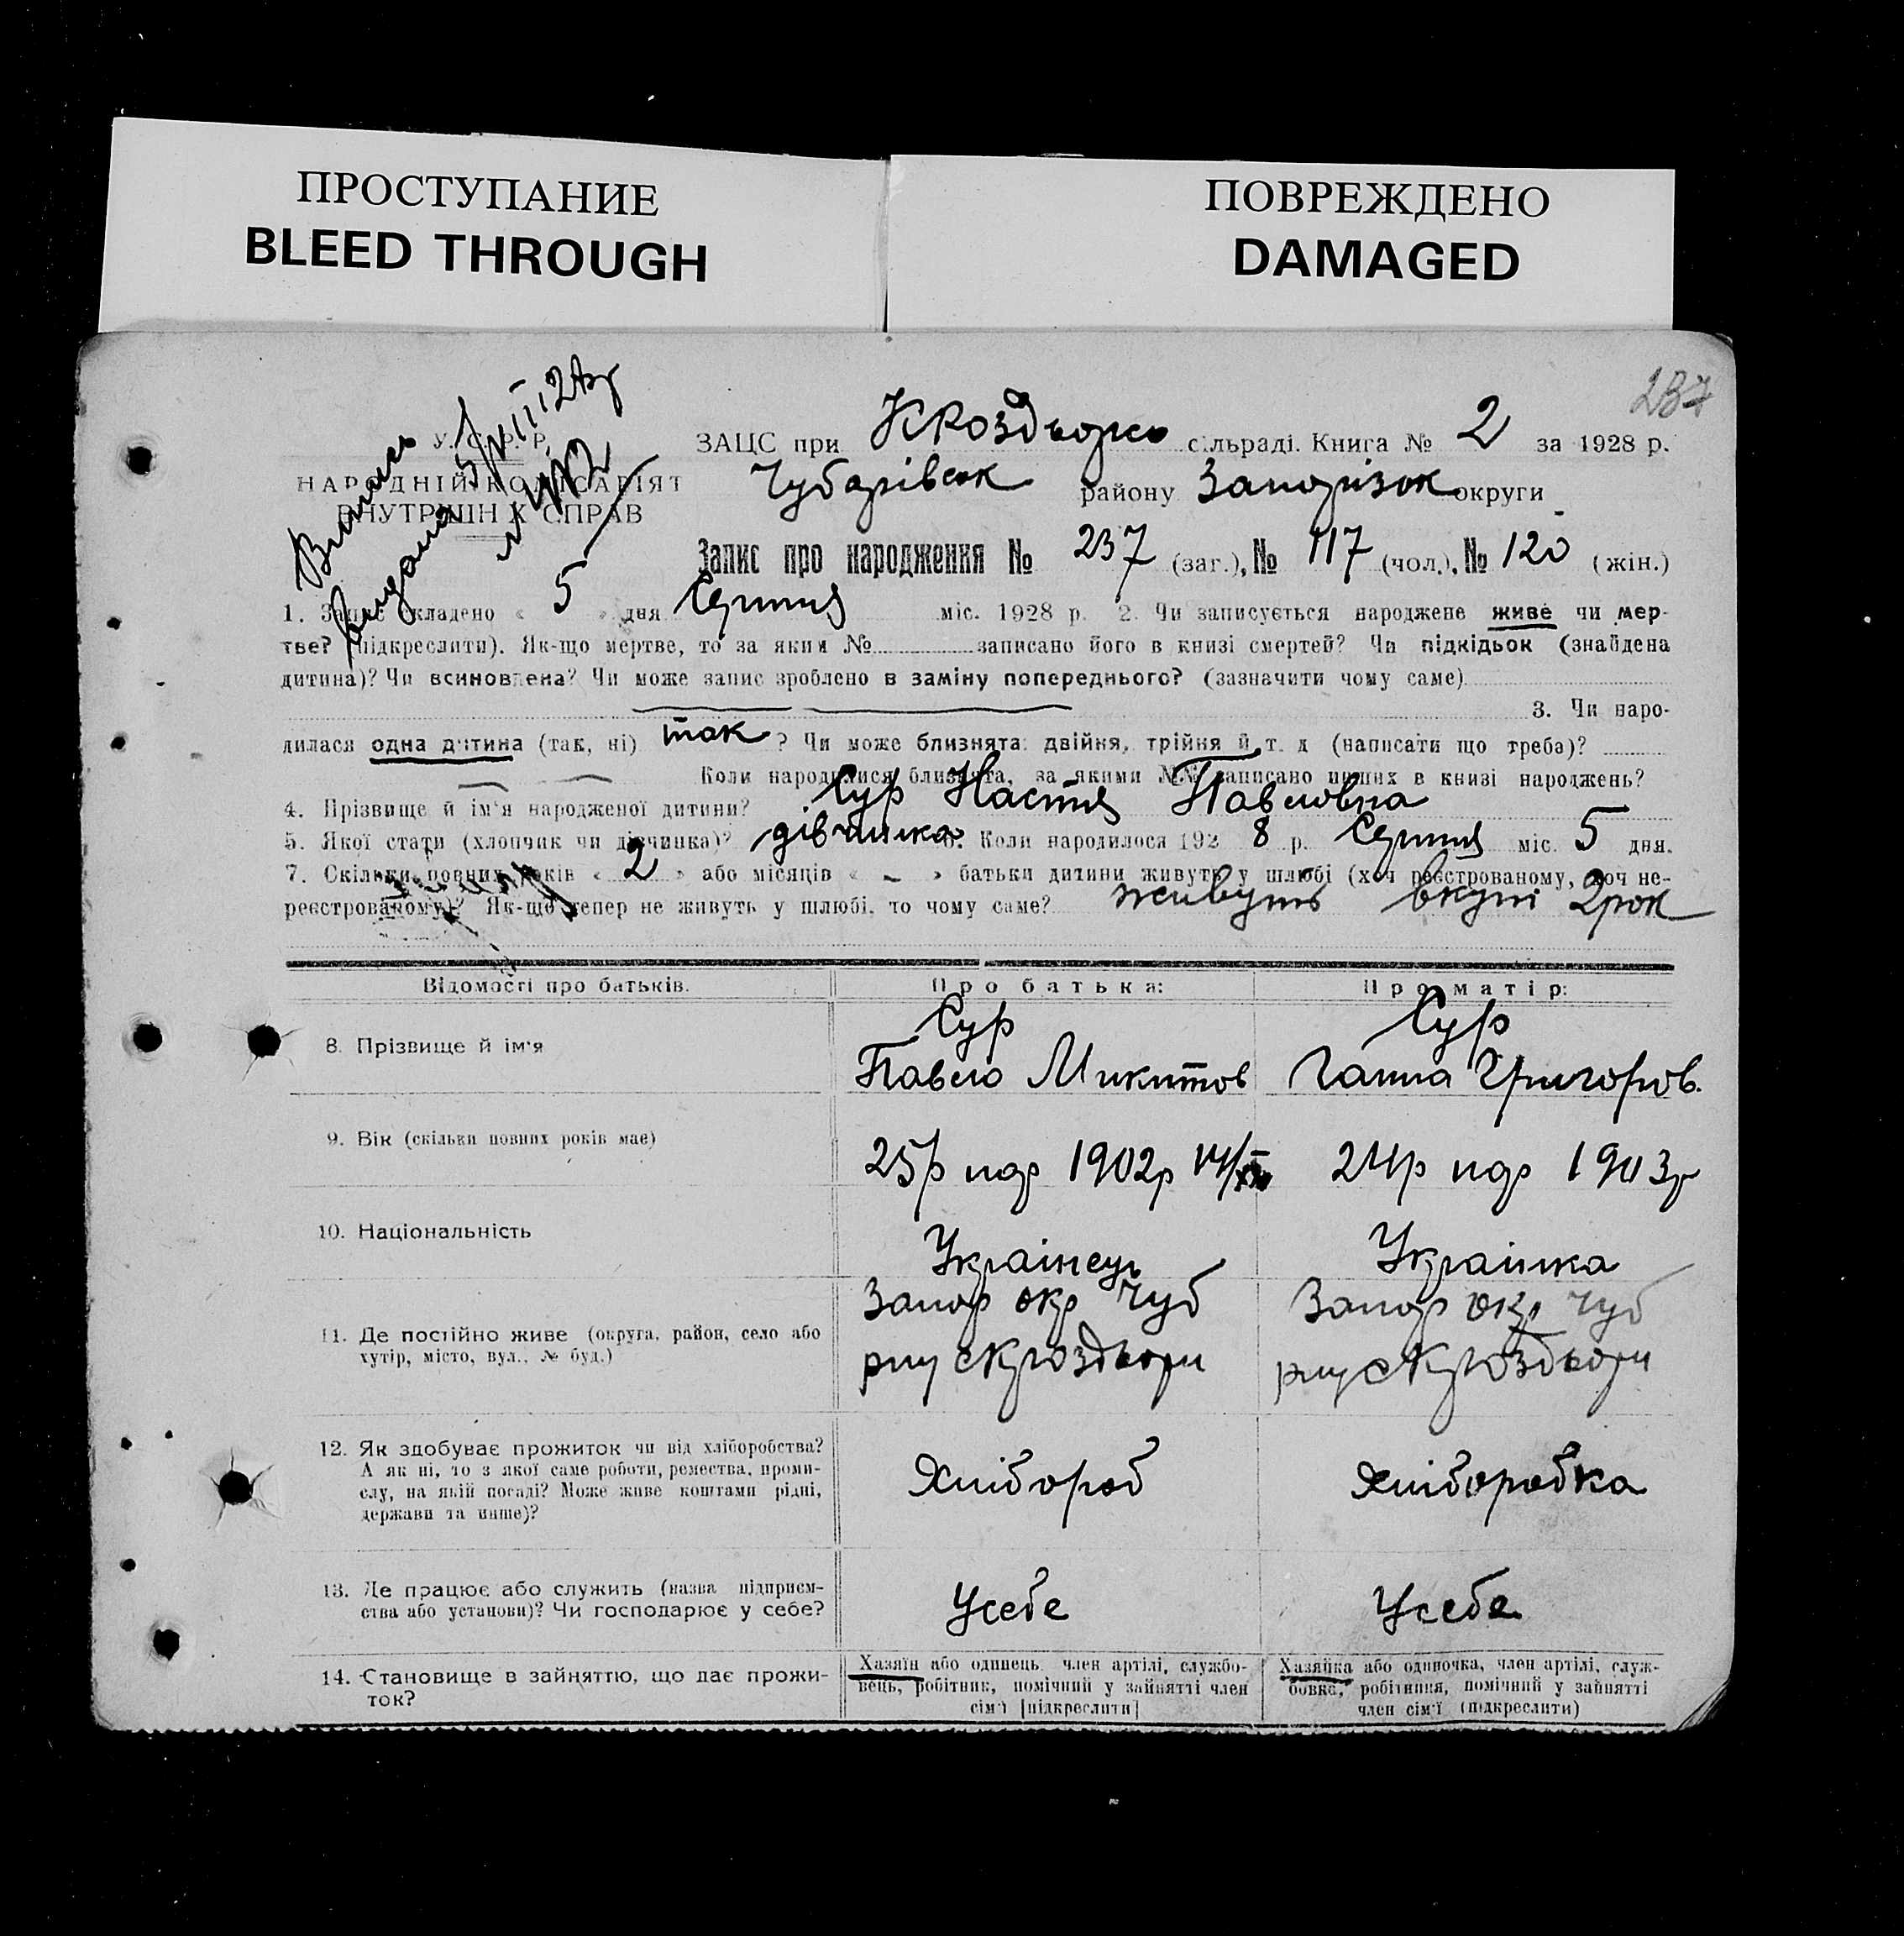 ПРОСТУПАНИЕ
BLEED THROUGH
ПОВРЕЖДЕНО
DAMAGED
237
У. С. Р. Р.
НАРОДНІЙ КОМІСАРІЯТ
ВНУТРІШНІХ СПРАВ
Випись
видана 5/VIII 28р
№ 492
ЗАЦС при Кроздьорсо сільраді. Книга № 2 за 1928 р.
Чубарівськ району Запорізок округи
Запис про народження № 237 (заг.), № 117 (чол.), № 120 (жін.)
1. Запис складено « 5 » дня Серпня міс. 1928 р. 2. Чи записується народжене живе чи мер-
тве? (підкреслити). Як-що мертве, то за яким № записано його в книзі смертей? Чи підкідьок (знайдена
дитина)? Чи всиновлена? Чи може запис зроблено в заміну попереднього? (зазначити чому саме)
3. Чи наро-
дилася одна дитина (так, ні) так ? Чи може близнята: двійня, трійня й т. д (написати що треба)?
Коли народилися близнята, за якими №№ записано инших в книзі народжень?
4. Прізвище й ім'я народженої дитини? Сур Настя Павловна
5. Якої стати (хлопчик чи дівчинка)? дівчинка 6. Коли народилося 192 8 р. Серпня міс. 5 дня.
7. Скільки повних років « 2 » або місяців « – » батьки дитини живуть у шлюбі (хоч реєстрованому, хоч не-
реєстрованому)? Як-що тепер не живуть у шлюбі, то чому саме? живуть вкупі 2 рок
Відомості про батьків.
Про батька:
Про матір:
8. Прізвище й ім'я
Сур
Павло Микитов
Сур
Ганна Григоров.
9. Вік (скільки повних років має)
25р нар 1902р 14/
24р нар 1903р
10. Національність
Украінець
Украінка
11. Де постійно живе (округа, район, село або
хутір, місто, вул., № буд.)
Запор окр Чуб
рну с Кроздьори
Запор окр Чуб
рну с Кроздьори
12. Як здобуває прожиток чи від хліборобства?
А як ні, то з якої саме роботи, ремества, проми-
слу, на якій посаді? Може живе коштами рідні,
держави та инше)?
Хлібороб
Хліборобка
13. Де працює або служить (назва підприєм-
ства або установи)? Чи господарює у себе?
Усебе
Усебе
14. Становище в зайняттю, що дає прожи-
ток?
Хазяїн або одинець, член артілі, службо-
вець, робітник, помічний у зайнятті член
сім'ї [підкреслити]
Хазяйка або одиночка, член артілі, служ-
бовка, робітниця, помічний у зайнятті
член сім'ї (підкреслити)